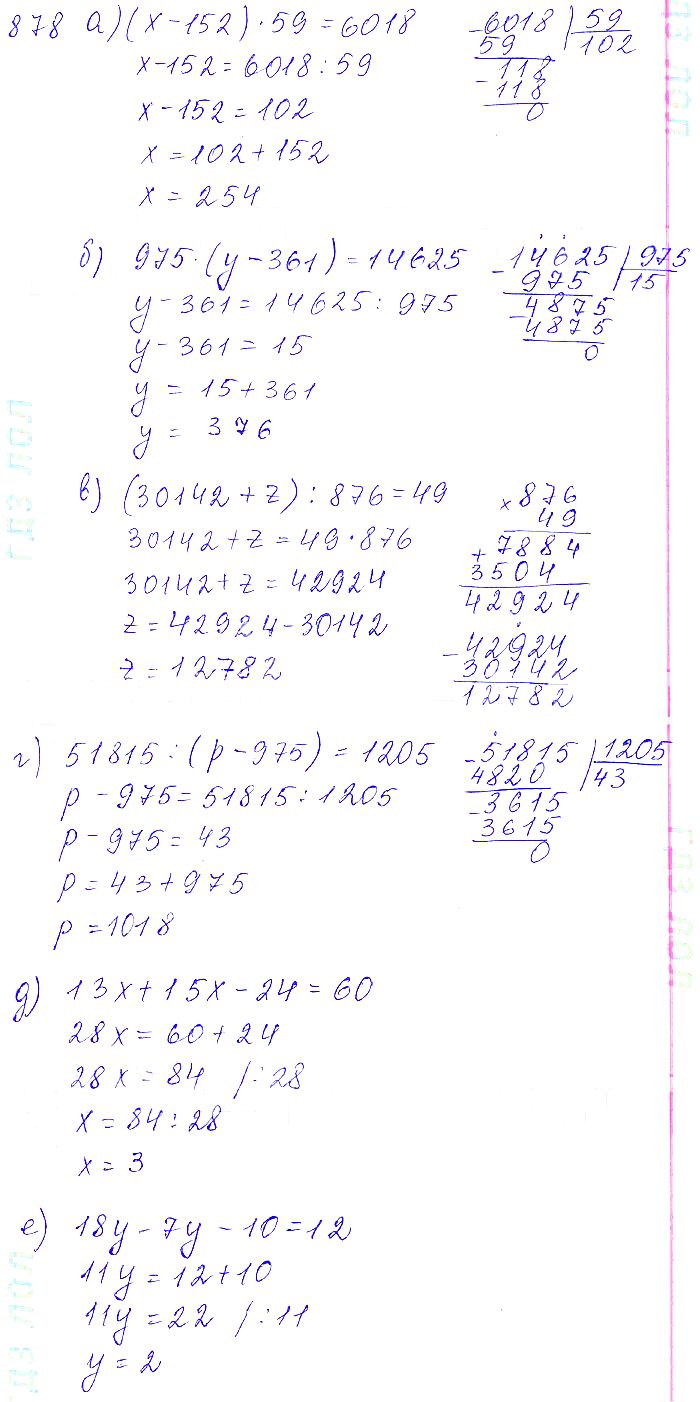 878 а) (x-152)·59=6018
x-152=6018:59
x-152=102
x=102+152
x=254
6018 | 59
59
102
118
118
0
б) 975·(y-361)=14625
y-361=14625:975
y-361=15
y=15+361
y=376
14625 | 975
975
15
4875
4875
0
в) (30142+z):876=49
30142+z=49·876
30142+z=42924
z=42924-30142
z=12782
×876
49
+7884
3504
42924
-42924
30142
12782
г) 51815:(p-975)=1205
p-975=51815:1205
p-975=43
p=43+975
p=1018
-51815 | 1205
4820
43
-3615
3615
0
д) 13x+15x-24=60
28x=60+24
28x=84 /:28
x=84:28
x=3
е) 18y-7y-10=12
11y=12+10
11y=22 /:11
y=2
ГДЗ ЛОЛ
ГДЗ ЛОЛ
ГДЗ ЛОЛ
ГДЗ ЛОЛ